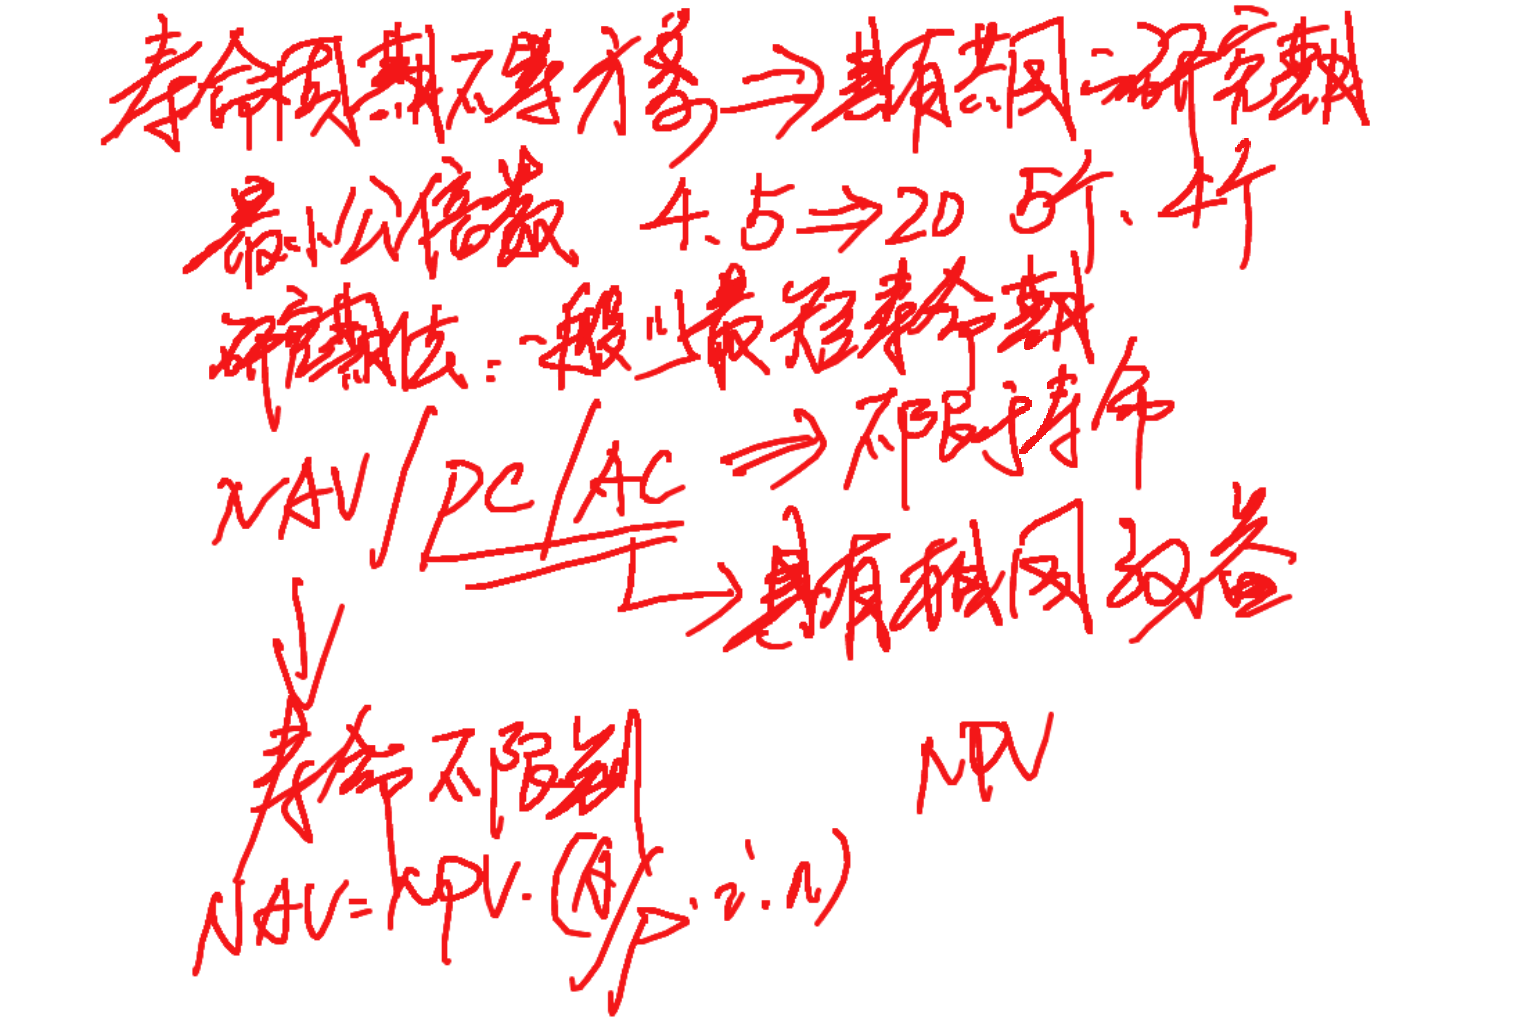 寿命周期不等方案 ⇒ 具有共同研究期
最小公倍数 4.5⇒20 5个、4个
研究期法:一般以最短寿命期
NAV/PC/AC ⇒ 不限于寿命
→具有相同效益
寿命不限制 NPV
NAV=NPV·(A/P.i.n)